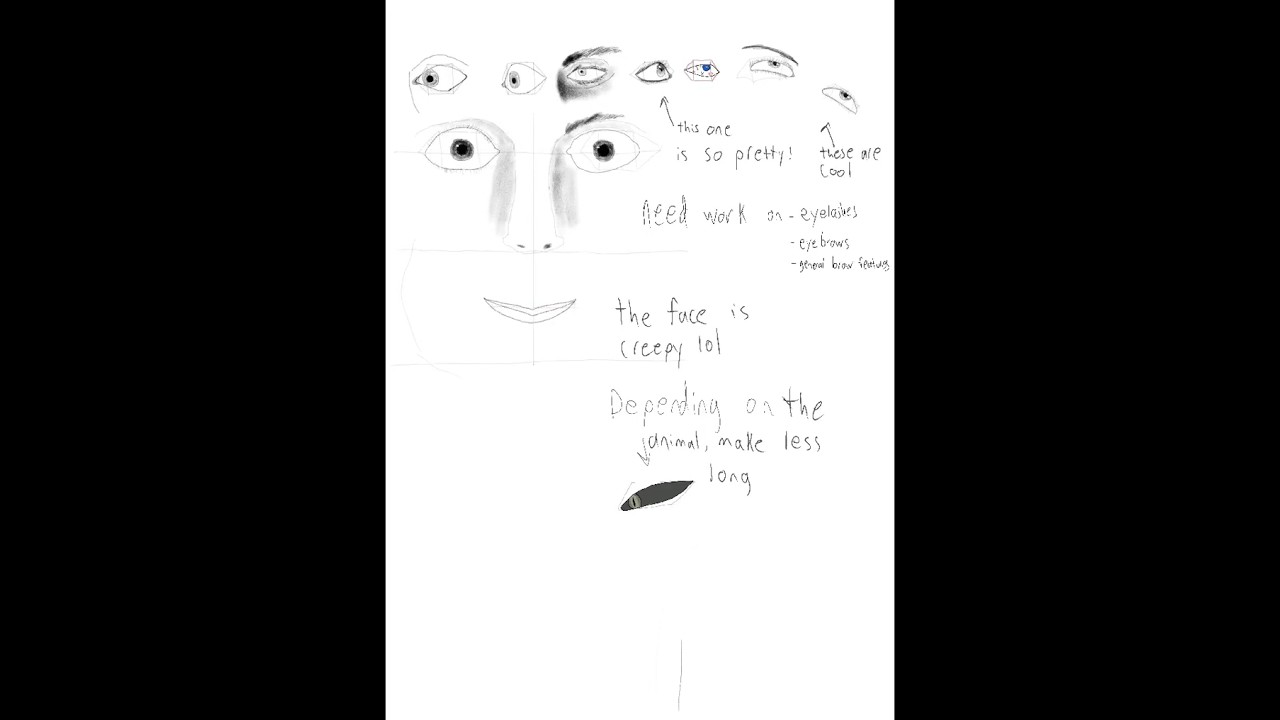 this one
is so pretty!
these are
cool
need work on - eyelashes
- eyebrows
- general brow features
the face is
creepy lol
Depending on the
animal, make less
long